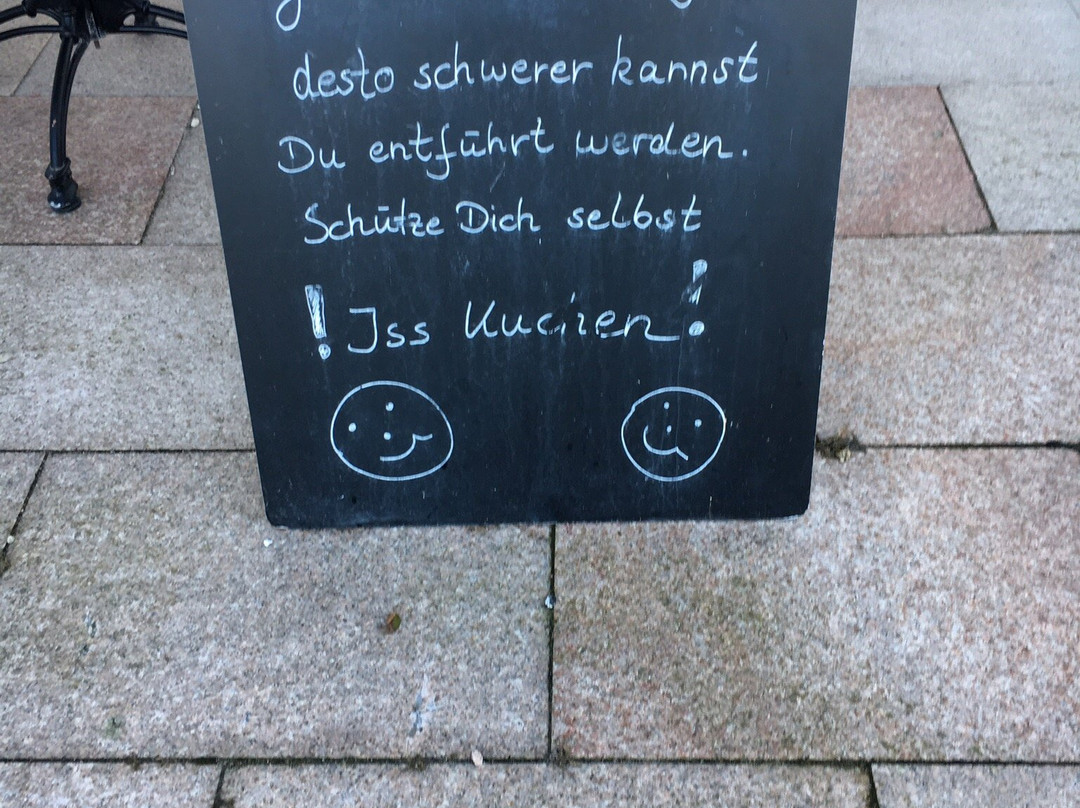 desto schwerer kannst
Du entführt werden.
Schütze Dich selbst
! Iss Kuchen!